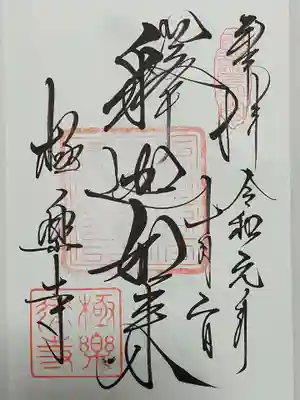 奉拝
令和元年
十一月二日
釋迦如来
極楽寺
極樂寺